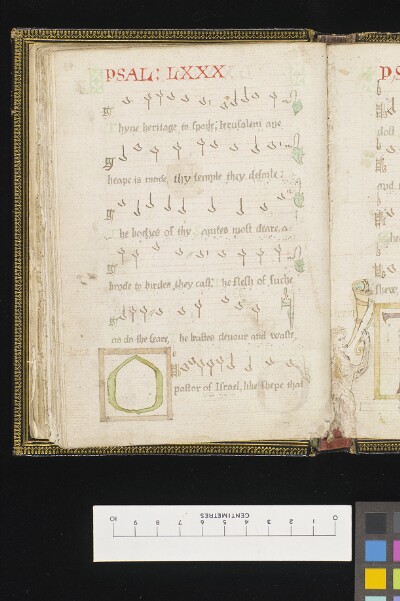 PSAL: LXXX
Thyne heritage to spoile, Ierusalem ane
heape is made, thy temple they defoile:
The bodyes of thy sanites most deare, a
brode to birdes they cast: the flesh of suche
as do the feare, the beastes devour and waste,
O
pastor of Israel, like shepe that
PS
dost
shew,
CENTIMETRES
10 9 8 7 6 5 4 3 2 1 0